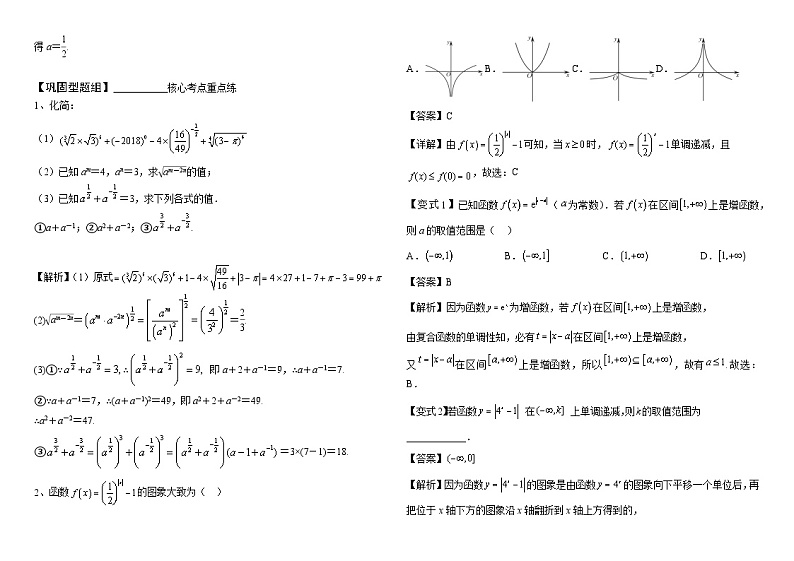 得 a=1/2.
【巩固型题组】__________核心考点重点练
1、化简:
(1) (∛2×√3)⁶+(−2018)⁰−4×(16/49)^(−1/2)+⁴√((3−π)⁴)
(2)已知 aᵐ=4,aⁿ=3,求√(aᵐ⁻²ⁿ)的值;
(3)已知a^(1/2)+a^(−1/2)=3,求下列各式的值.
①a+a−1;②a2+a−2;③a^(3/2)+a^(−3/2).
【解析】(1)原式=(∛2)⁶×(√3)⁶+1−4×√(49/16)+|3−π|=4×27+1−7+π−3=99+π
(2)√(aᵐ⁻²ⁿ)=(aᵐ·a⁻²ⁿ)^(1/2)=[aᵐ/(aⁿ)²]^(1/2)=(4/3²)^(1/2)=2/3.
(3)①∵a^(1/2)+a^(−1/2)=3,∴(a^(1/2)+a^(−1/2))²=9, 即 a+2+a−1=9,∴a+a−1=7.
②∵a+a−1=7,∴(a+a−1)2=49,即 a2+2+a−2=49.
∴a2+a−2=47.
③a^(3/2)+a^(−3/2)=(a^(1/2))³+(a^(−1/2))³=(a^(1/2)+a^(−1/2))(a−1+a⁻¹)=3×(7−1)=18.
2、函数 f(x)=(1/2)^|x|−1的图象大致为( )
A. y O x B. y O x C. y O x D. y O x
【答案】C
【详解】由 f(x)=(1/2)^|x|−1可知,当 x≥0 时, f(x)=(1/2)^x−1单调递减,且
f(x)≤f(0)=0,故选:C
【变式1】已知函数 f(x)=e^|x−a|(a为常数).若 f(x)在区间[1,+∞)上是增函数,
则 a 的取值范围是( )
A.(−∞,1) B.(−∞,1] C.(1,+∞) D.[1,+∞)
【答案】B
【解析】因为函数 y=eˣ为增函数,若 f(x)在区间[1,+∞)上是增函数,
由复合函数的单调性知,必有 t=|x−a|在区间[1,+∞)上是增函数,
又 t=|x−a|在区间[a,+∞)上是增函数,所以[1,+∞)⊆[a,+∞),故有 a≤1.故选:
B.
【变式2】若函数 y=|4ˣ−1| 在(−∞,k] 上单调递减,则 k 的取值范围为
__________.
【答案】(−∞,0]
【解析】因为函数 y=|4ˣ−1|的图象是由函数 y=4ˣ的图象向下平移一个单位后,再
把位于 x 轴下方的图象沿 x 轴翻折到 x 轴上方得到的,